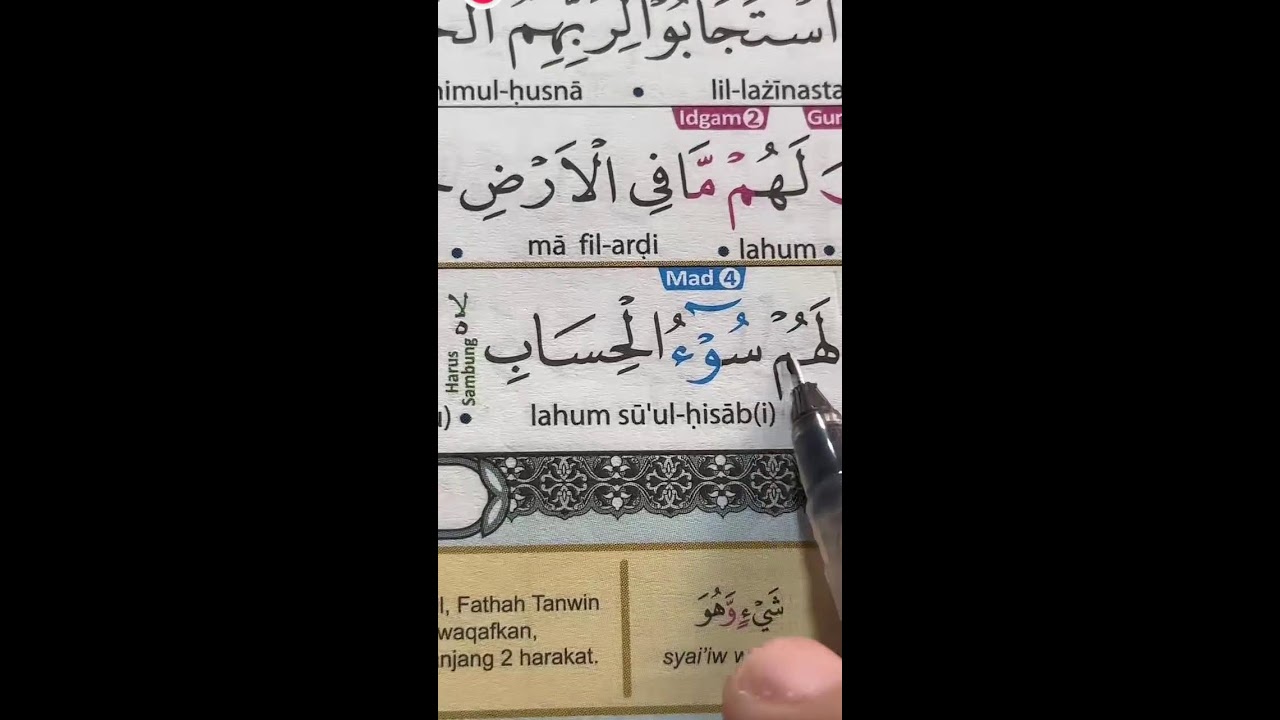 اسْتَجَابُوْا لِرَبِّهِمُ
himul-ḥusnā • lil-lażīnasta
Idgam 2 Gur
لَهُمْ مَّا فِى الْاَرْضِ
• mā fil-arḍi • lahum •
Mad 4
لَهُمْ سُوْۤءُ الْحِسَابِ
Harus Sambung
• lahum sū'ul-ḥisāb(i)
l, Fathah Tanwin
waqafkan,
njang 2 harakat.
شَيْءٍ وَّهُوَ
syai'iw w